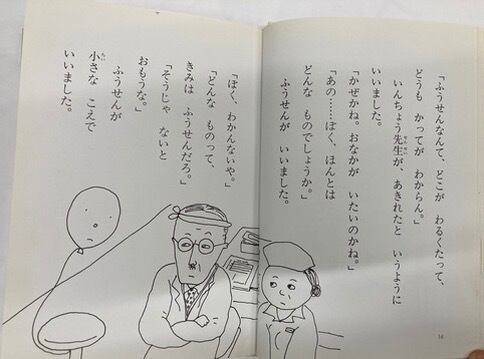 「ふうせんなんて、どこが わるくたって、
どうも かってが わからん。」
いんちょう先生が、あきれたと いうように
いいました。
「かぜかね。おなかが いたいのかね。」
「あの……ぼく、ほんとは
どんな ものでしょうか。」
ふうせんが いいました。
「ぼく、わかんないや。」
「どんな ものって、
きみは ふうせんだろ。」
「そうじゃ ないと
おもうな。」
ふうせんが
小さな こえで
いいました。
14